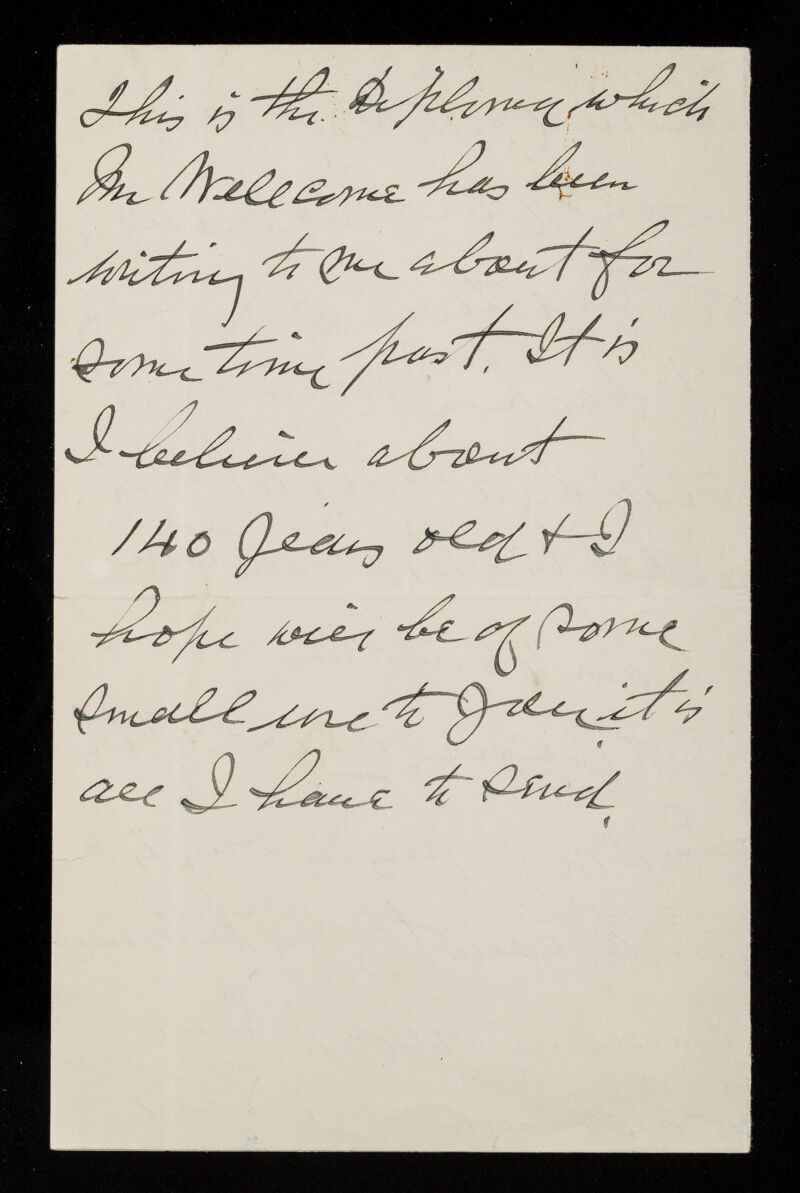 This is the Diploma which
Mr Wellcome has been
writing to me about for
some time past. It is
I believe about
140 years old & I
hope will be of some
small use to you it is
all I have to send.